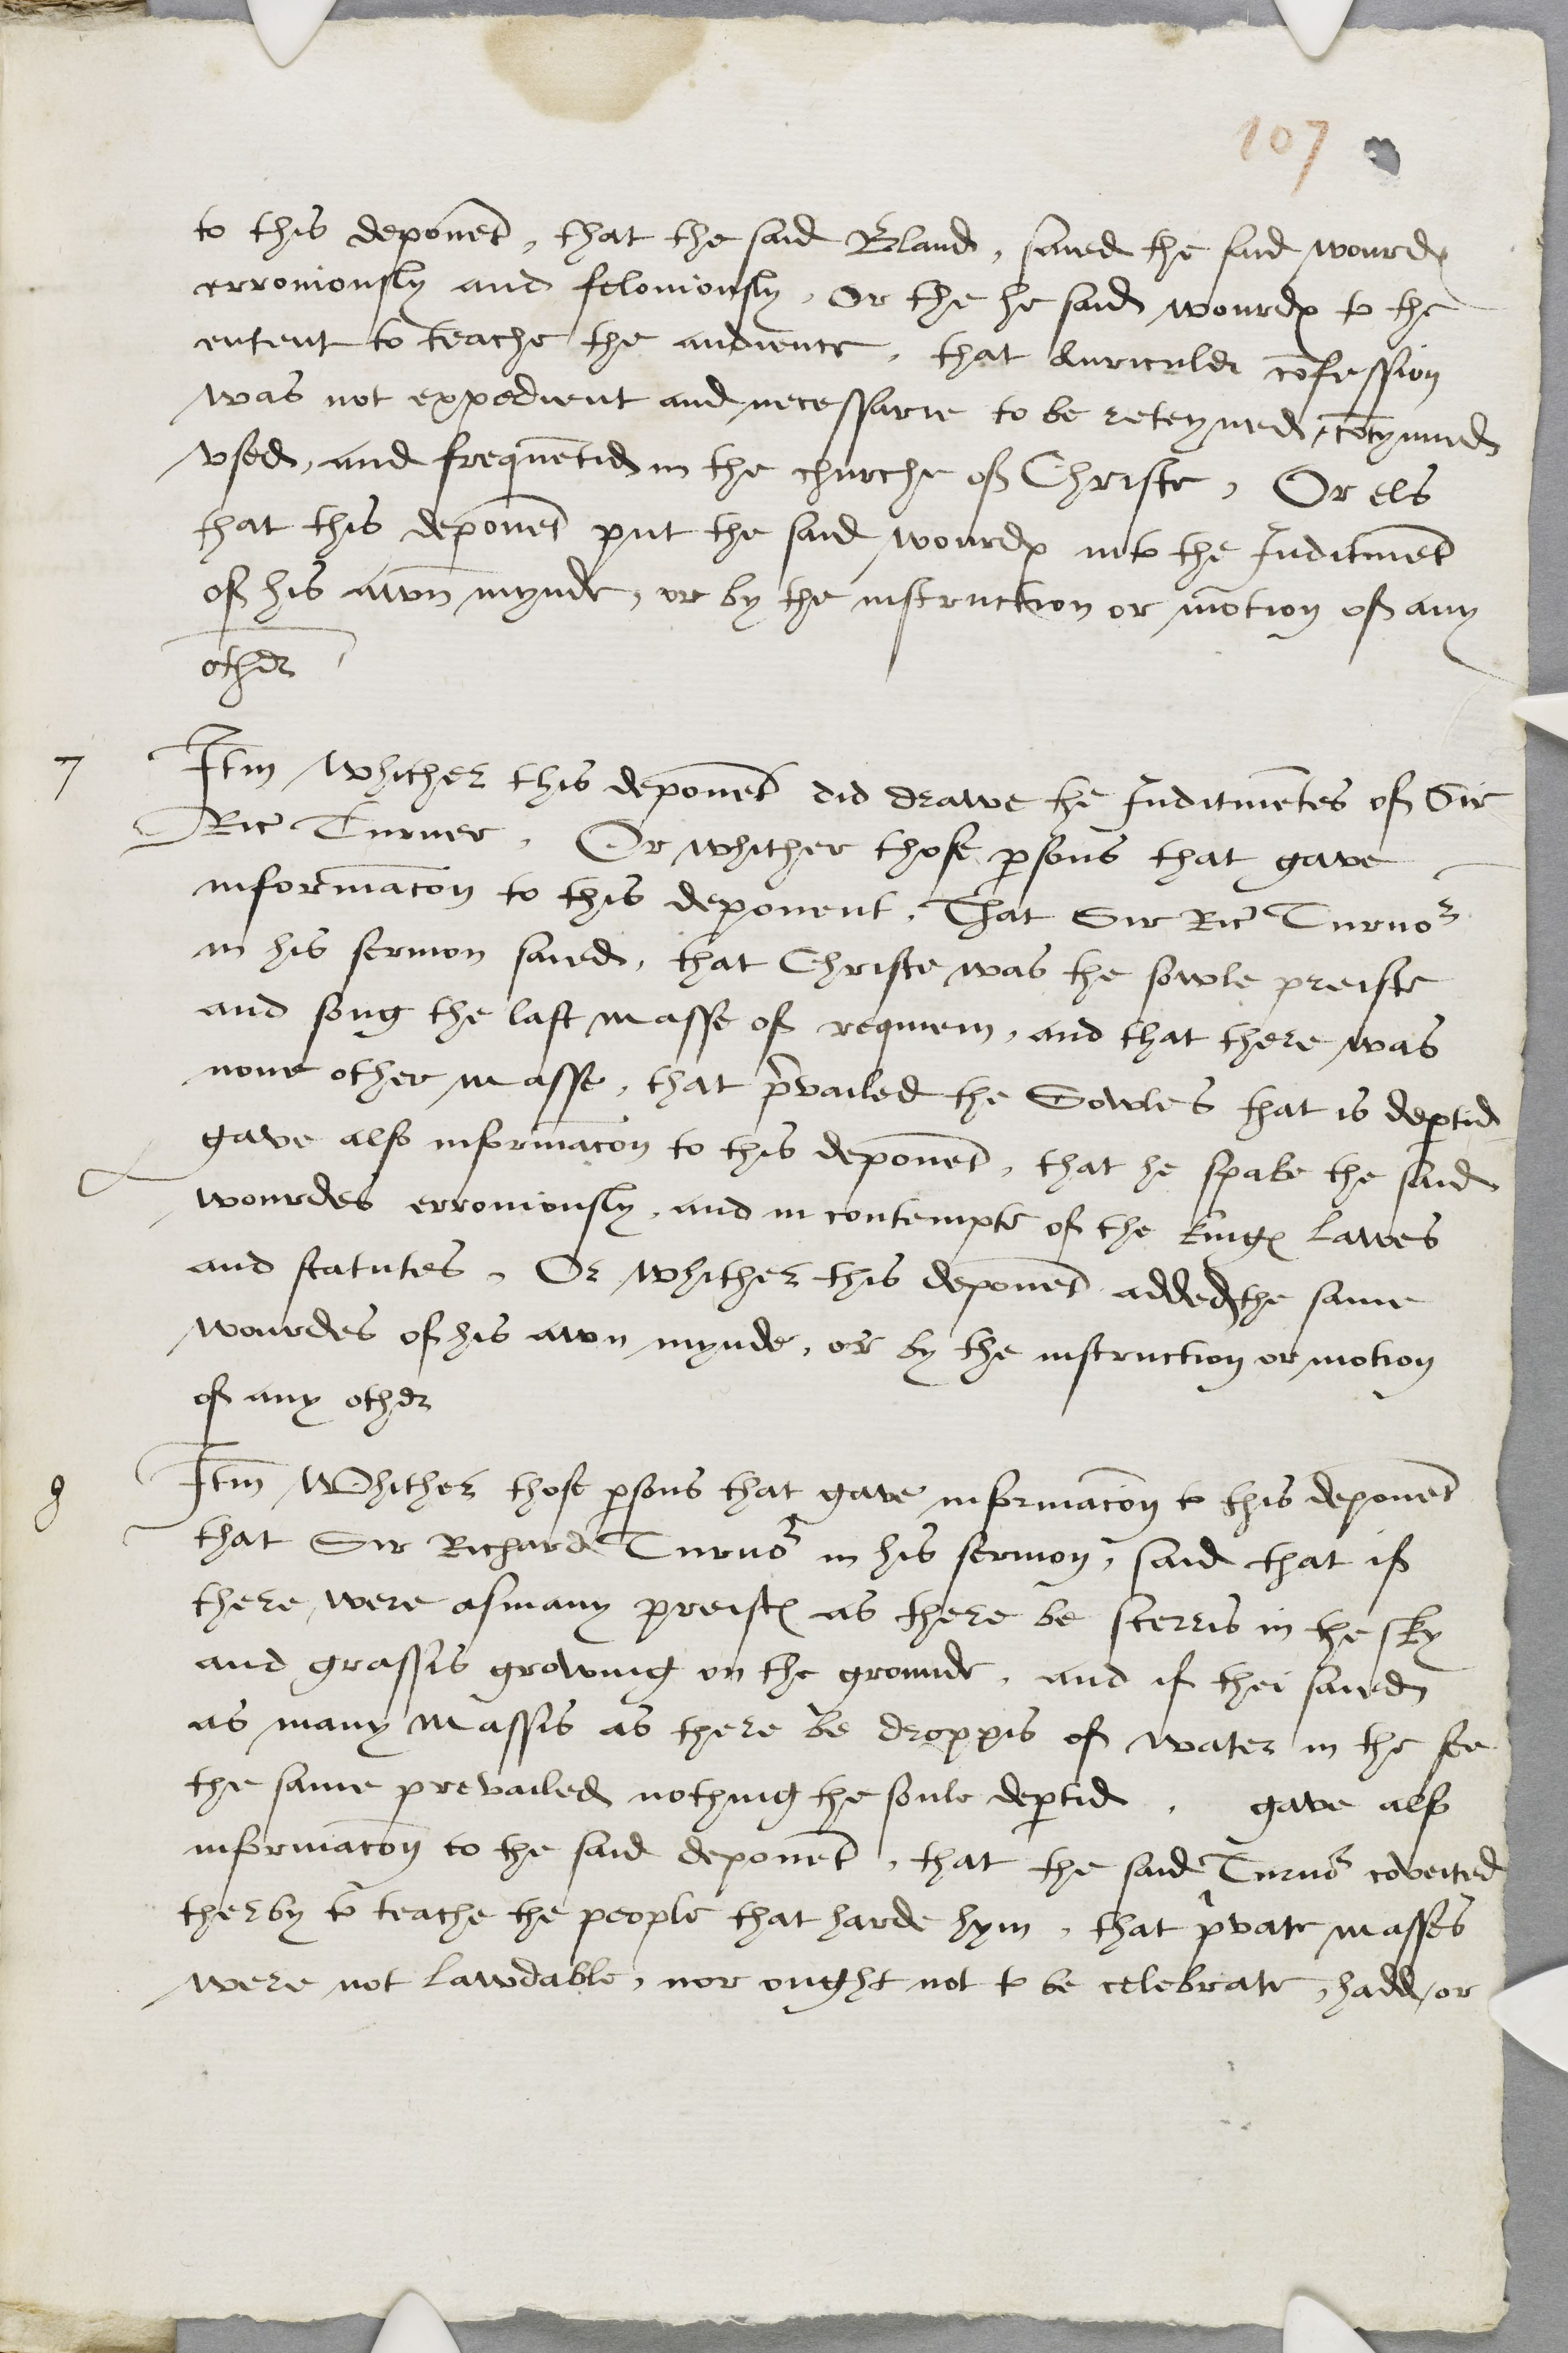 107
to this deponent, that the said Bland, saied the said wourdes
erroniously and feloniously, or the he said wourdes to the
entent to teache the audience, that Auriculer confession
was not expedient and necessarie to be reteyned, contynued
vsed, and frequentid in the churche of Christe, Or els
that this deponent put the said wourdes into the Inditment
of his awn mynde, or by the instruction or motion of any
other
7 Itm Whither this deponent did drawe the Inditmentes of Sir
Ric Turner, Or whither those persons that gave
informacon to this deponent, That Sir Ric Turnor
in his sermon saied, that Christe was the sowle preiste
and song the last masse of requiem, and that there was
none other masse, that prevailed the Sowles that is departid
gave also informacon to this deponent, that he spake the said
wourdes erroniously, and in contempte of the kinges lawes
and statutes, Or whither this deponent added the same
wourdes of his awn mynde, or by the instruction or motion
of any other
8 Itm Whither those persons that gave informacon to this deponent
that Sir Richard Turnor in his sermon, said that if
there were asmany preistes as there be sterris in the sky
and grassis growing on the grounde, and if thei saied
as many massis as there be droppis of water in the see
the same prevailed nothing the soule departid, gave also
informacon to the said deponent, that the said Turnor coveited
therby to teache the people that harde hym, that private masses
were not lawdable, nor ought not to be celebrate, hadd, or